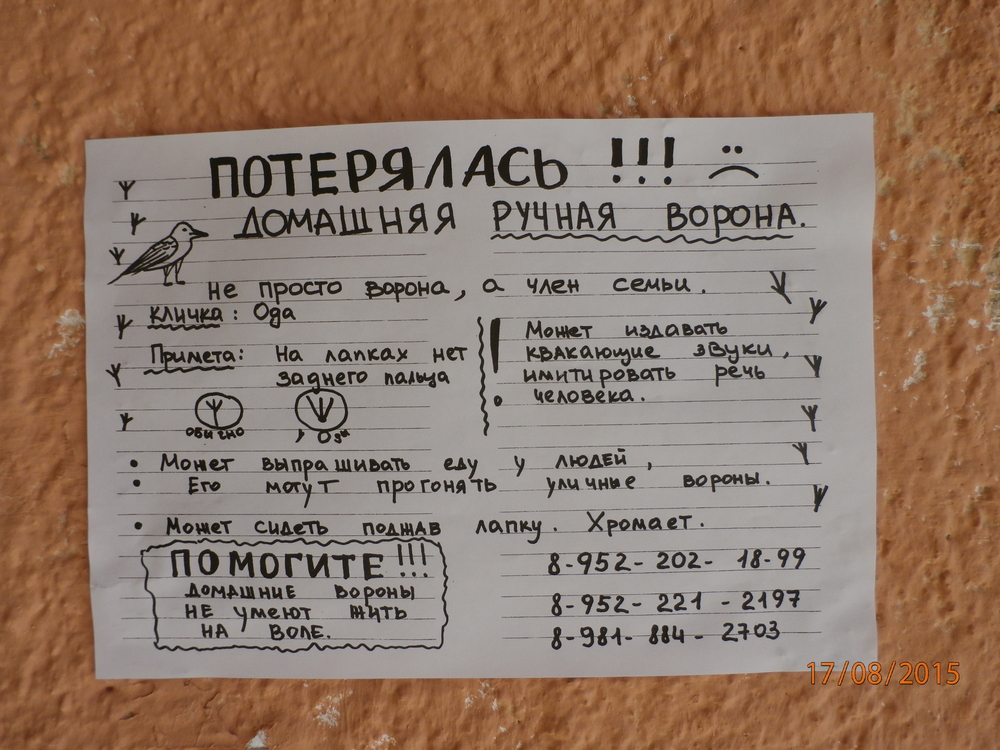 ПОТЕРЯЛАСЬ !!!
ДОМАШНЯЯ РУЧНАЯ ВОРОНА.
не просто ворона, а член семьи.
Кличка: Ода
Примета: На лапках нет
заднего пальца
обычно У Оды
Может издавать
квакающие звуки,
имитировать речь
человека.
• Может выпрашивать еду у людей,
• Его могут прогонять уличные вороны.
• Может сидеть поджав лапку. Хромает.
ПОМОГИТЕ!!!
ДОМАШНИЕ ВОРОНЫ
НЕ УМЕЮТ ЖИТЬ
НА ВОЛЕ.
8-952-202-18-99
8-952-221-2197
8-981-884-2703
17/08/2015